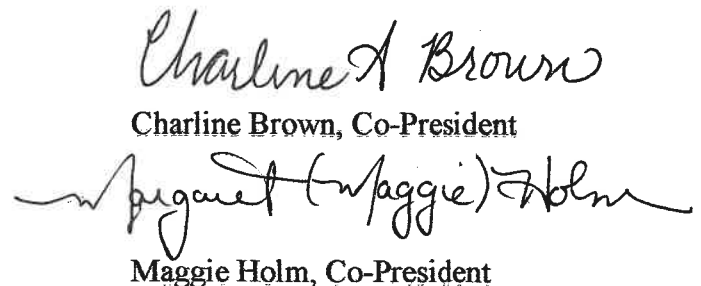 Charline A Brown
Charline Brown, Co-President
Margaret (Maggie) Holm
Maggie Holm, Co-President